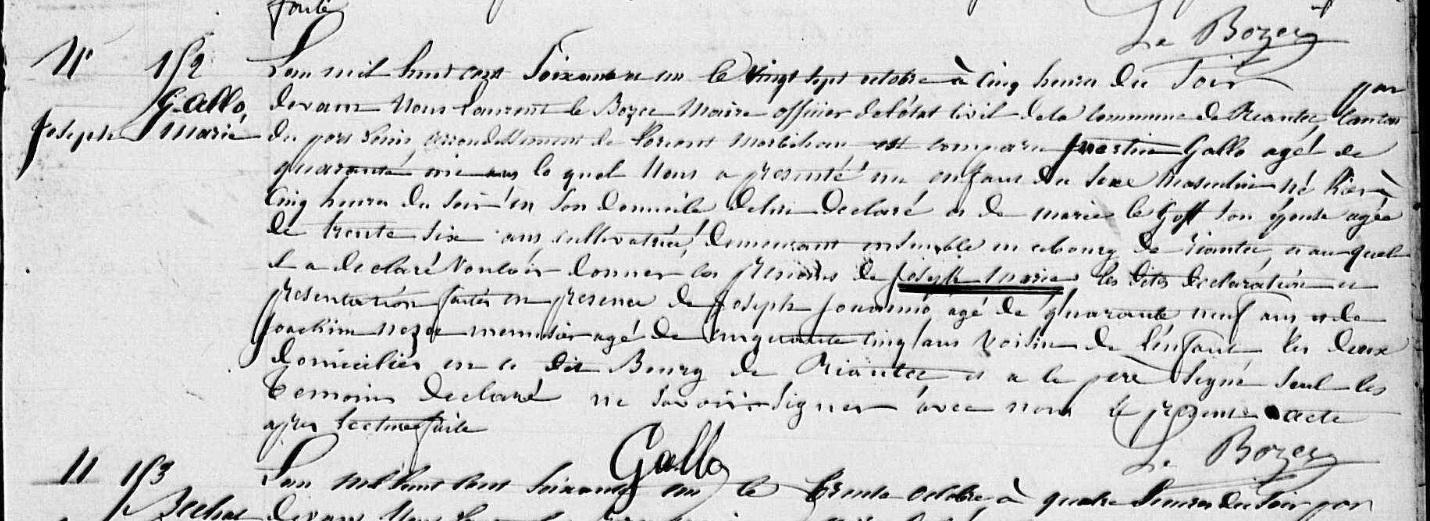 faite
Le Bozec
N° 152
Gallo
Joseph Marie
L'an mil huit cent Soixante un le Vingt sept octobre à cinq heures du Soir par
devant Nous Laurent le Bozec Maire officier de l'état Civil de la Commune de Riantec Canton
du port Louis arrondissement de Lorient Morbihan est comparu Gallo agé de
quarante ans le quel Nous a présenté un enfant du Sexe Masculin né hier à
Cinq heures du Soir en Son domicile de lui déclaré et de marie le Goff Son épouse agée
de trente Six ans cultivatrice demeurant ensemble en cebourg de riantec, et au quel
il a déclaré Vouloir donner les prénoms de Joseph Marie les dites déclaration et
présentation faites en présence de Joseph agé de quarante neuf ans et de
Joachim menuisier agé de Cinquante Cinq ans Voisins de l'enfant les deux
domiciliés en ce dit Bourg de Riantec et a le père Signé Seul les
témoins déclaré ne Savoir Signer avec nous le présent acte
après Lecture faite
Gallo
Le Bozec
N 153
L'an mil huit cent Soixante un le trente octobre, à quatre heures du Soir par
devant Nous